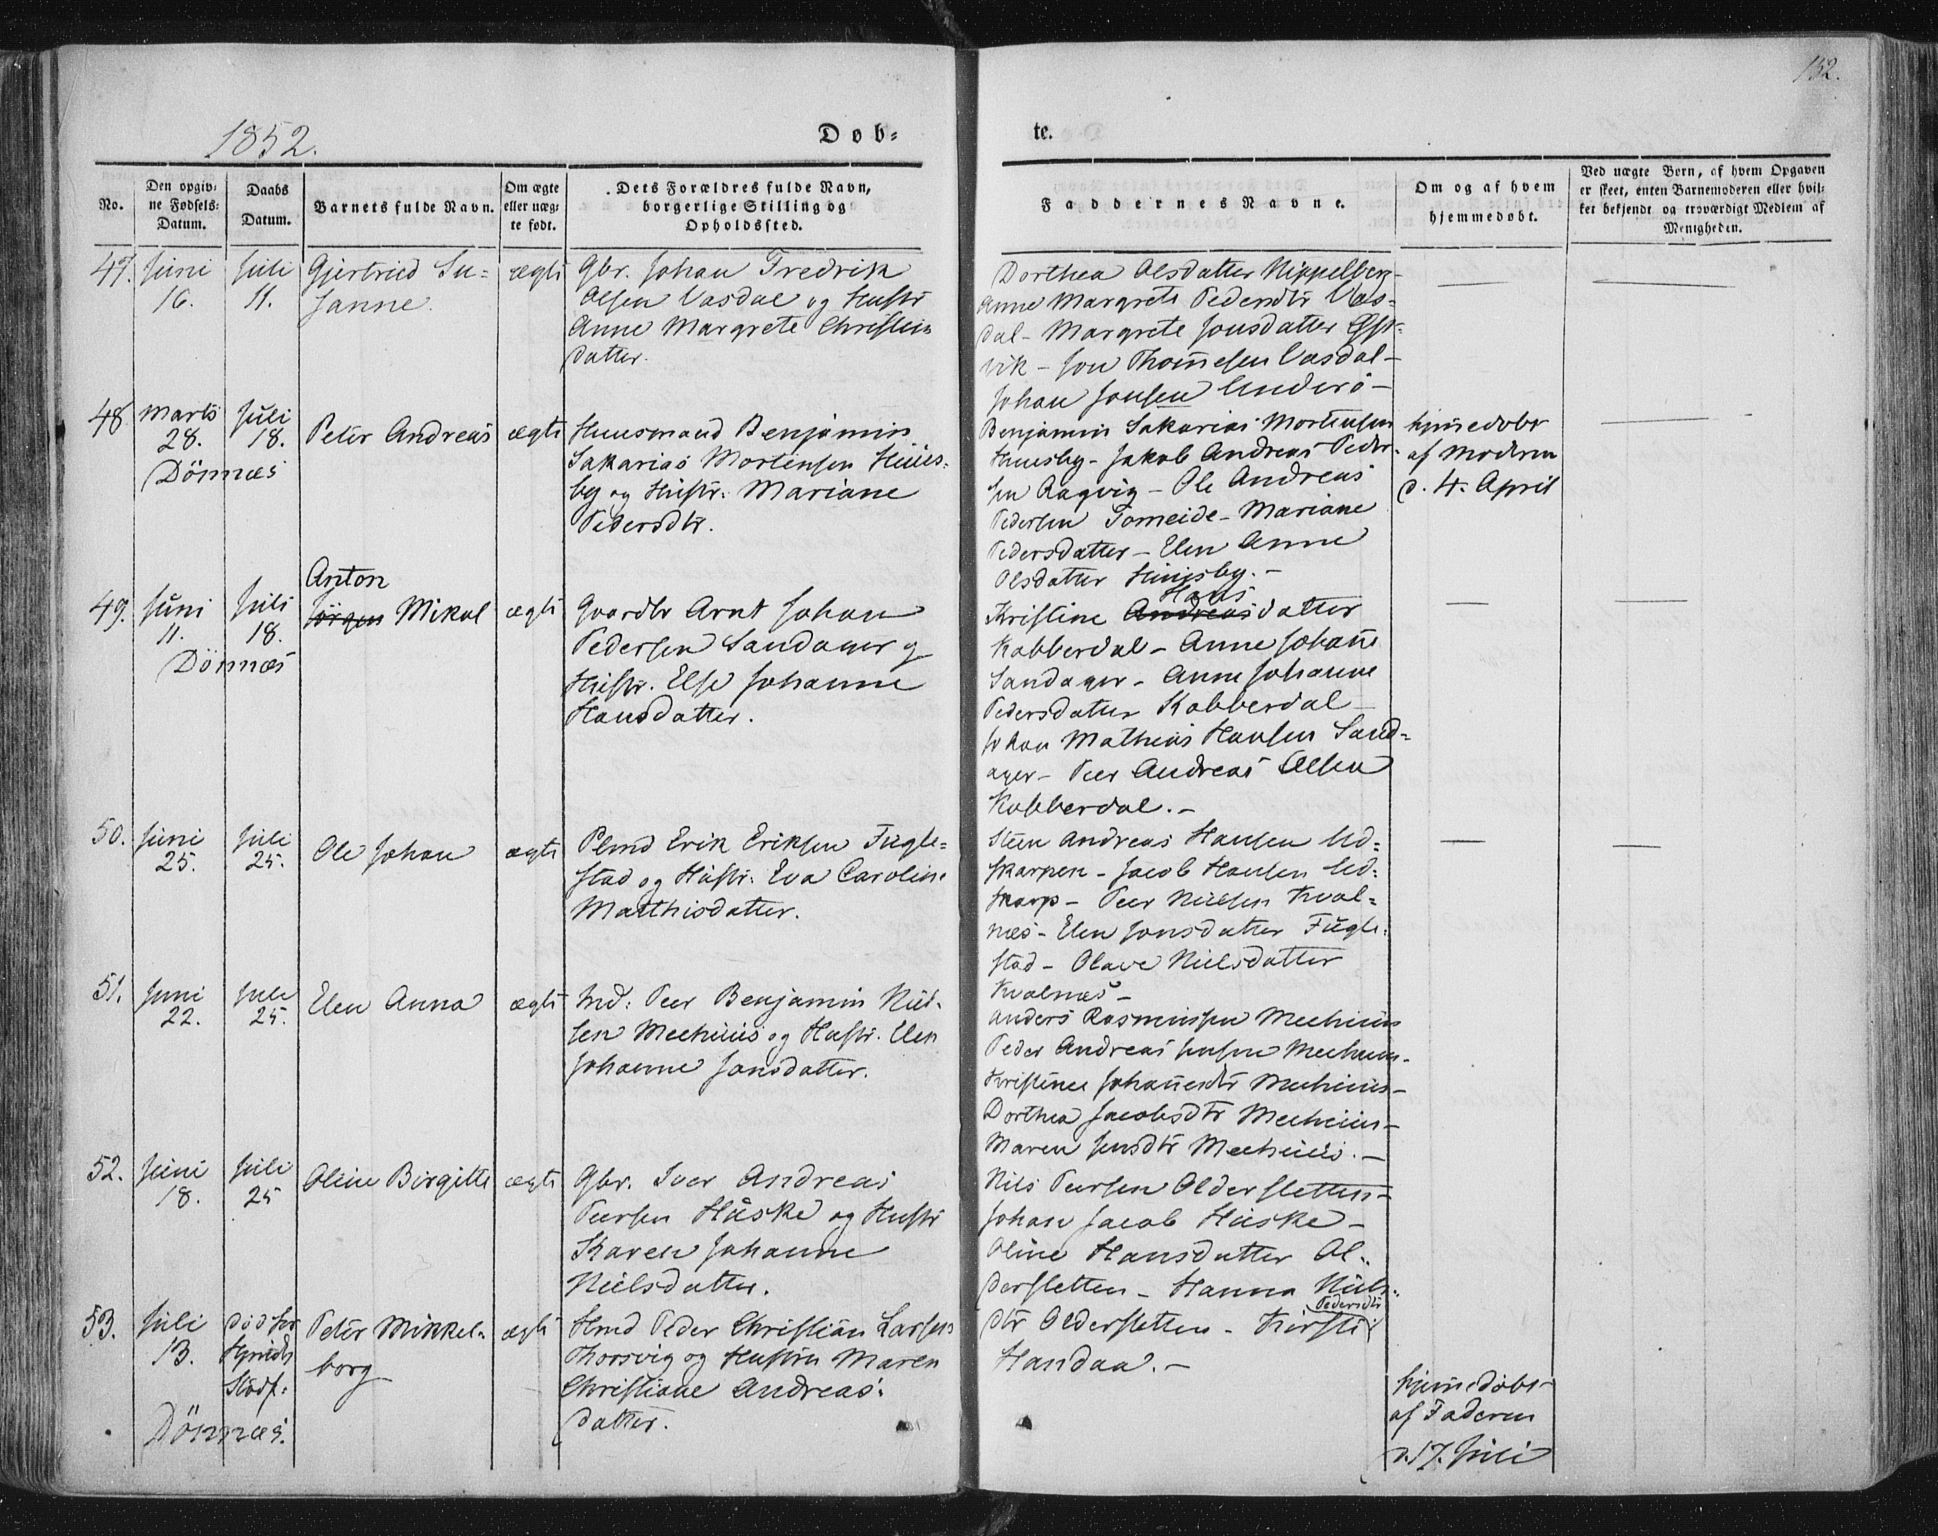 152.
1852.
Døb=
te.
No.
Den opgiv=
ne Fødsels=
Datum.
Daabs
Datum.
Barnets fulde Navn.
Om ægte
eller uæg=
te født.
Dets Forældres fulde Navn,
borgerlige Stilling og
Opholdssted.
Faddernes Navne.
Om og af hvem
hjemmedøbt.
Ved uægte Børn, af hvem Opgaven
er skeet, enten Barnemoderen eller hvil=
ket bekjendt og troværdigt Medlem af
Menigheden.
47. Juni
16.
Juli
11.
Gjertrud Su=
sanne.
ægte
Gbr. Johan Fredrik
Olsen Vasdal og Hustr
Anne Margrete Christens
datter.
Dorthea Olsdatter Nippelberg-
Anne Margrete Pedersdtr Vas-
dal - Margrete Jonsdatter
vik - Jon Thomesen Vasdal-
Johan Jonsen Anderö-
48 Marts
28.
Dönnæs
Juli
18.
Peter Andreas
ægte
Huusmand Benjamin
Sakarias Mortensen Huus=
by og Hustr: Mariane
Pedersdtr.
Benjamin Sakarias Mortensen
Huusby - Jakob Andreas Peder-
sen Ragvig - Ole Andreas
Pedersen Tomeide - Mariane
Pedersdatter - Elen Anne
Olsdatter Huusby.-
hjemedöbt
af Modren
d. 4. April
49. Juni
11.
Dönnæs
Juli
18.
Anton
Jörgen Mikal
ægte
Gaardbr Arnt Johan
Pedersen Sandager og
Hustr. Else Johanne
Hansdatter.
Hans
Kristine Andreasdatter
Kobberdal - Anne Johane
Sandager - Anne Johanne
Pedersdatter Kobberdal-
Johan Mathias Hansen Sand-
ager - Peer Andreas Olsen
Kobberdal.-
50. Juni
25.
Juli
25.
Ole Johan
ægte
Plmd Erik Eriksen Fugle=
stad og Hustr: Eva Caroline
Matthisdatter.
Steen Andreas Hansen Ud=
skarpen - Jacob Hansen Ud=
skarp - Peer Nielsen Kval=
næs - Elen Jonsdatter Fugle=
stad - Olave Nielsdatter
Kvalnæs-
51. Juni
22.
Juli
25.
Elen Anna
ægte
Ind: Peer Benjamin Niel-
sen Meehuus og Hustr. Elen
Johanne Jonsdatter.
Anders Rasmussen Meehuus
Peder Andreas Jensen Meehuus-
Kristine Johanesdtr Meehuus-
Dorthea Jacobsdtr Meehuus-
Maren Jensdtr Meehuus.-
52. Juni
18.
Juli
25
Oline Birgitte
ægte
Gbr. Iver Andreas
Peersen Huske og Hustr
Karen Johanne
Nielsdatter.
Nils Peersen Oldersletten-
Johan Jacob Huske-
Oline Hansdatter Ol-
dersletten - Hanna Niels-
dtr Oldersletten - Kirsti
Pedersdtr
Handaa.-
53. Juli
13.
Dönnæs.
död før
Hjmdb
Stadf:
Peter Mikkel-
borg
ægte
Hmd Peder Christian Larsen
Thorsvig og Hustru Maren
Christiane Andreas-
datter.
hjemedöbt
af Faderen
d. 17. Juli